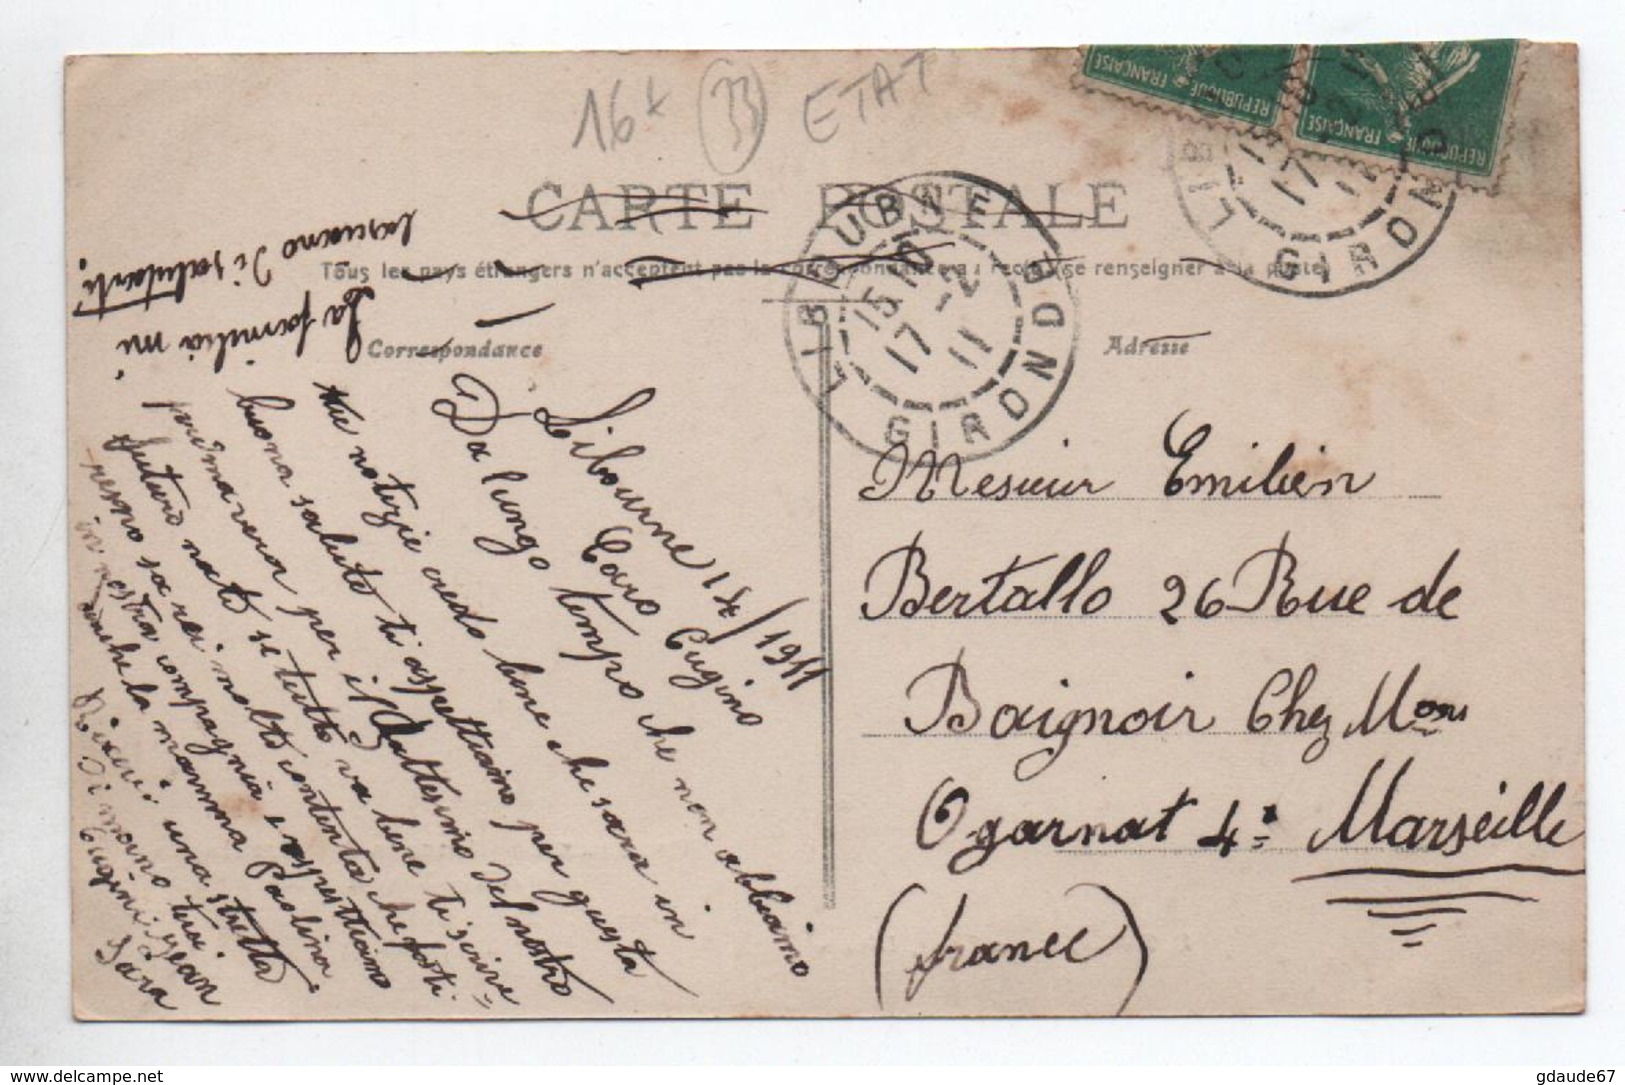 16+ 33 ETAT
REPUBLIQUE FRANÇAISE
REPUBLIQUE FRANÇAISE
CARTE POSTALE
Tous les pays étrangers n'acceptent pas la correspondance au recto, se renseigner à la poste
Correspondance
Adresse
LIBOURNE GIRONDE
17 - 2
11
LIBOURNE GIRONDE
17
11
Libourne 1911
Caro Cugino
Da lungo tempo che non abbiamo
tue notizie credo bene che sarai in
buona salute ti aspettiamo per questa
primavera per il Battesimo del nostro
futuro nato si tutto va bene ti scrive=
remo sarei molto contenta che fosti
in nostra compagnia aspettiamo
anche la mamma Paolina.
Ricevi una stretta
di mano tuoi
Cugini Jean
Sara
La familia mi
lasciano di salutarti.
Mesieur Emilien
Bertallo 26 Rue de
Baignoir Chez Mons
Ogarnat 4e Marseille
(france)
gdaude67
www.delcampe.net